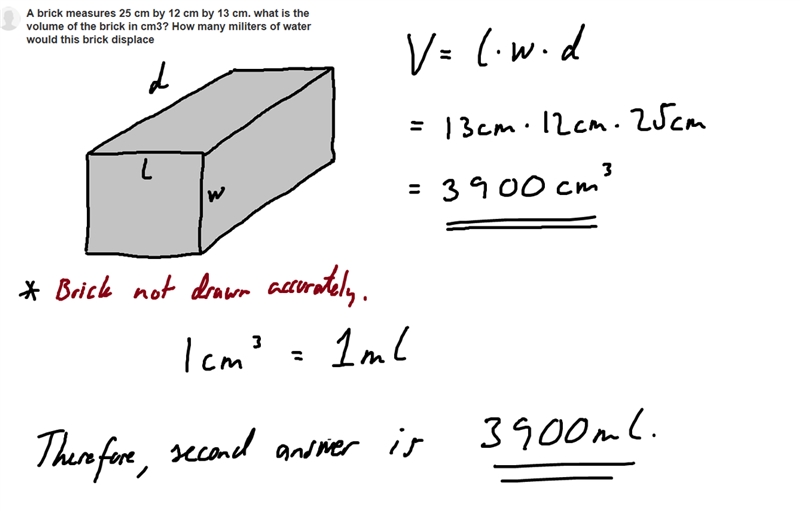 A brick measures 25 cm by 12 cm by 13 cm. what is the
volume of the brick in cm3? How many militers of water
would this brick displace
V = l · w · d
= 13cm · 12cm · 25cm
= 3900 cm³
d
l
w
* Brick not drawn accurately.
1 cm³ = 1ml
Therefore, second answer is 3900ml.